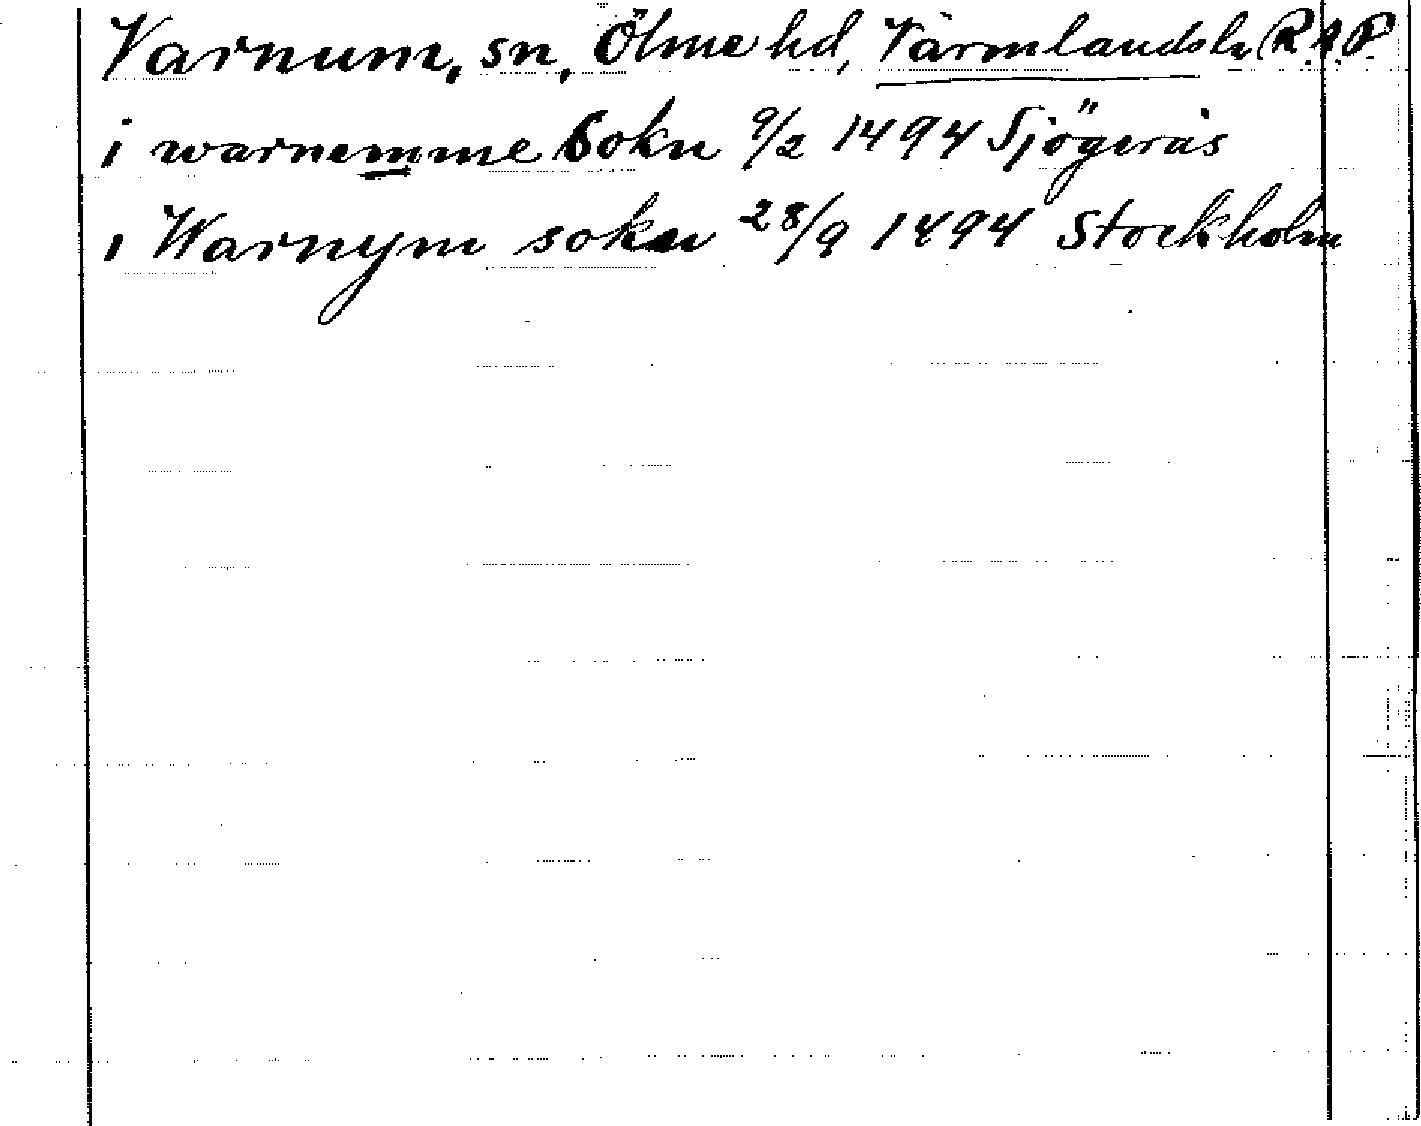 Varnum, sn, Ölme hd, Värmlands l. RAP
i warnemme sokn 9/2 1494 Sjögerås
i Warnym sokn 28/9 1494 Stockholm